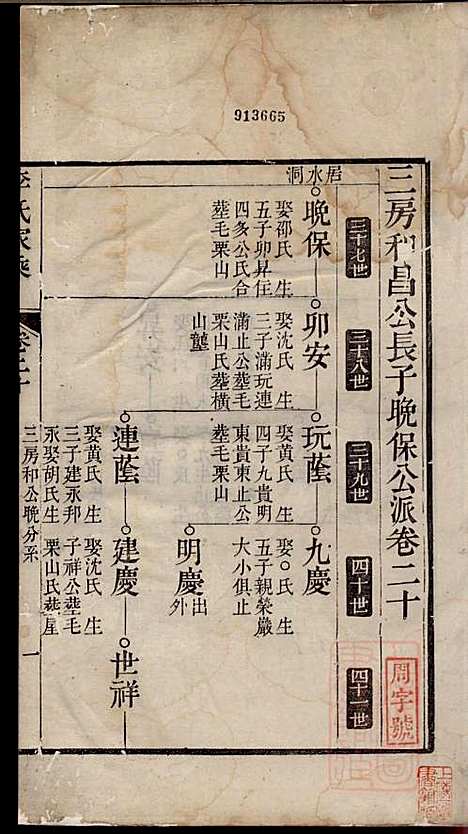 913665
三房和昌公長子晚保公派卷二十
三十七世
三十八世
三十九世
四十世
四十一世
居水洞
晚保
娶邵氏生
五子卯昇任
四多公氏合
塟毛栗山
卯安
娶沈氏生
三子滿玩連
滿止公塟毛
栗山氏塟横
山壟
玩蔭
娶黄氏生
四子九貴明
東貴東止公
塟毛栗山
九慶
娶○氏生
五子親榮嚴
大小俱止
明慶
出外
連蔭
娶黄氏生
三子建永邦
永娶胡氏生
建慶
娶沈氏生
子祥公塟毛
栗山氏塟屋
世祥
氏家乘
卷二十
三房和公晚分系
一
周字號